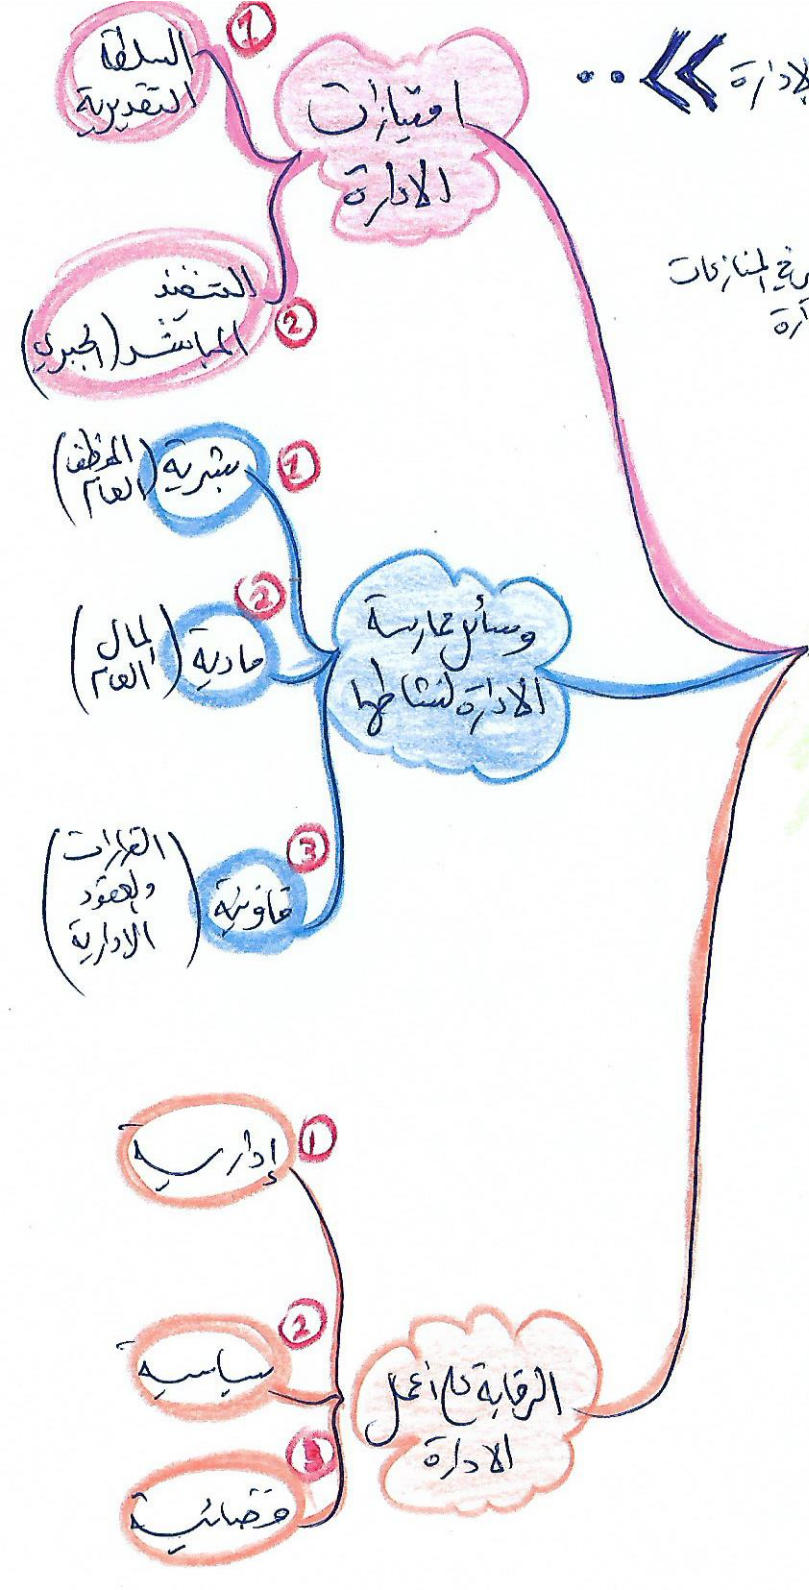 الادارة
في المنازعات
امتيازات
الادارة
1
السلطة
التقديرية
2
التنفيذ
المباشر (الجبري)
وسائل ممارسة
الادارة لنشاطها
1
بشرية (الموظف
العام)
2
مادية (المال
العام)
3
قانونية (القرارات
والعقود
الادارية)
الرقابة على أعمال
الادارة
1
إدارية
2
سياسية
3
قضائية